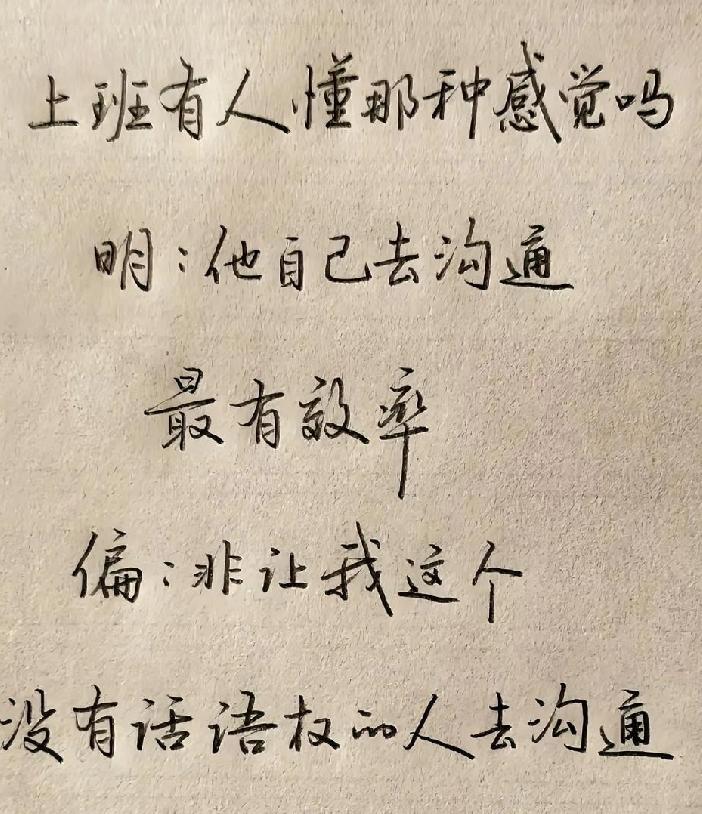 上班有人懂那种感觉吗
明：他自己去沟通
最有效率
偏：非让我这个
没有话语权的人去沟通